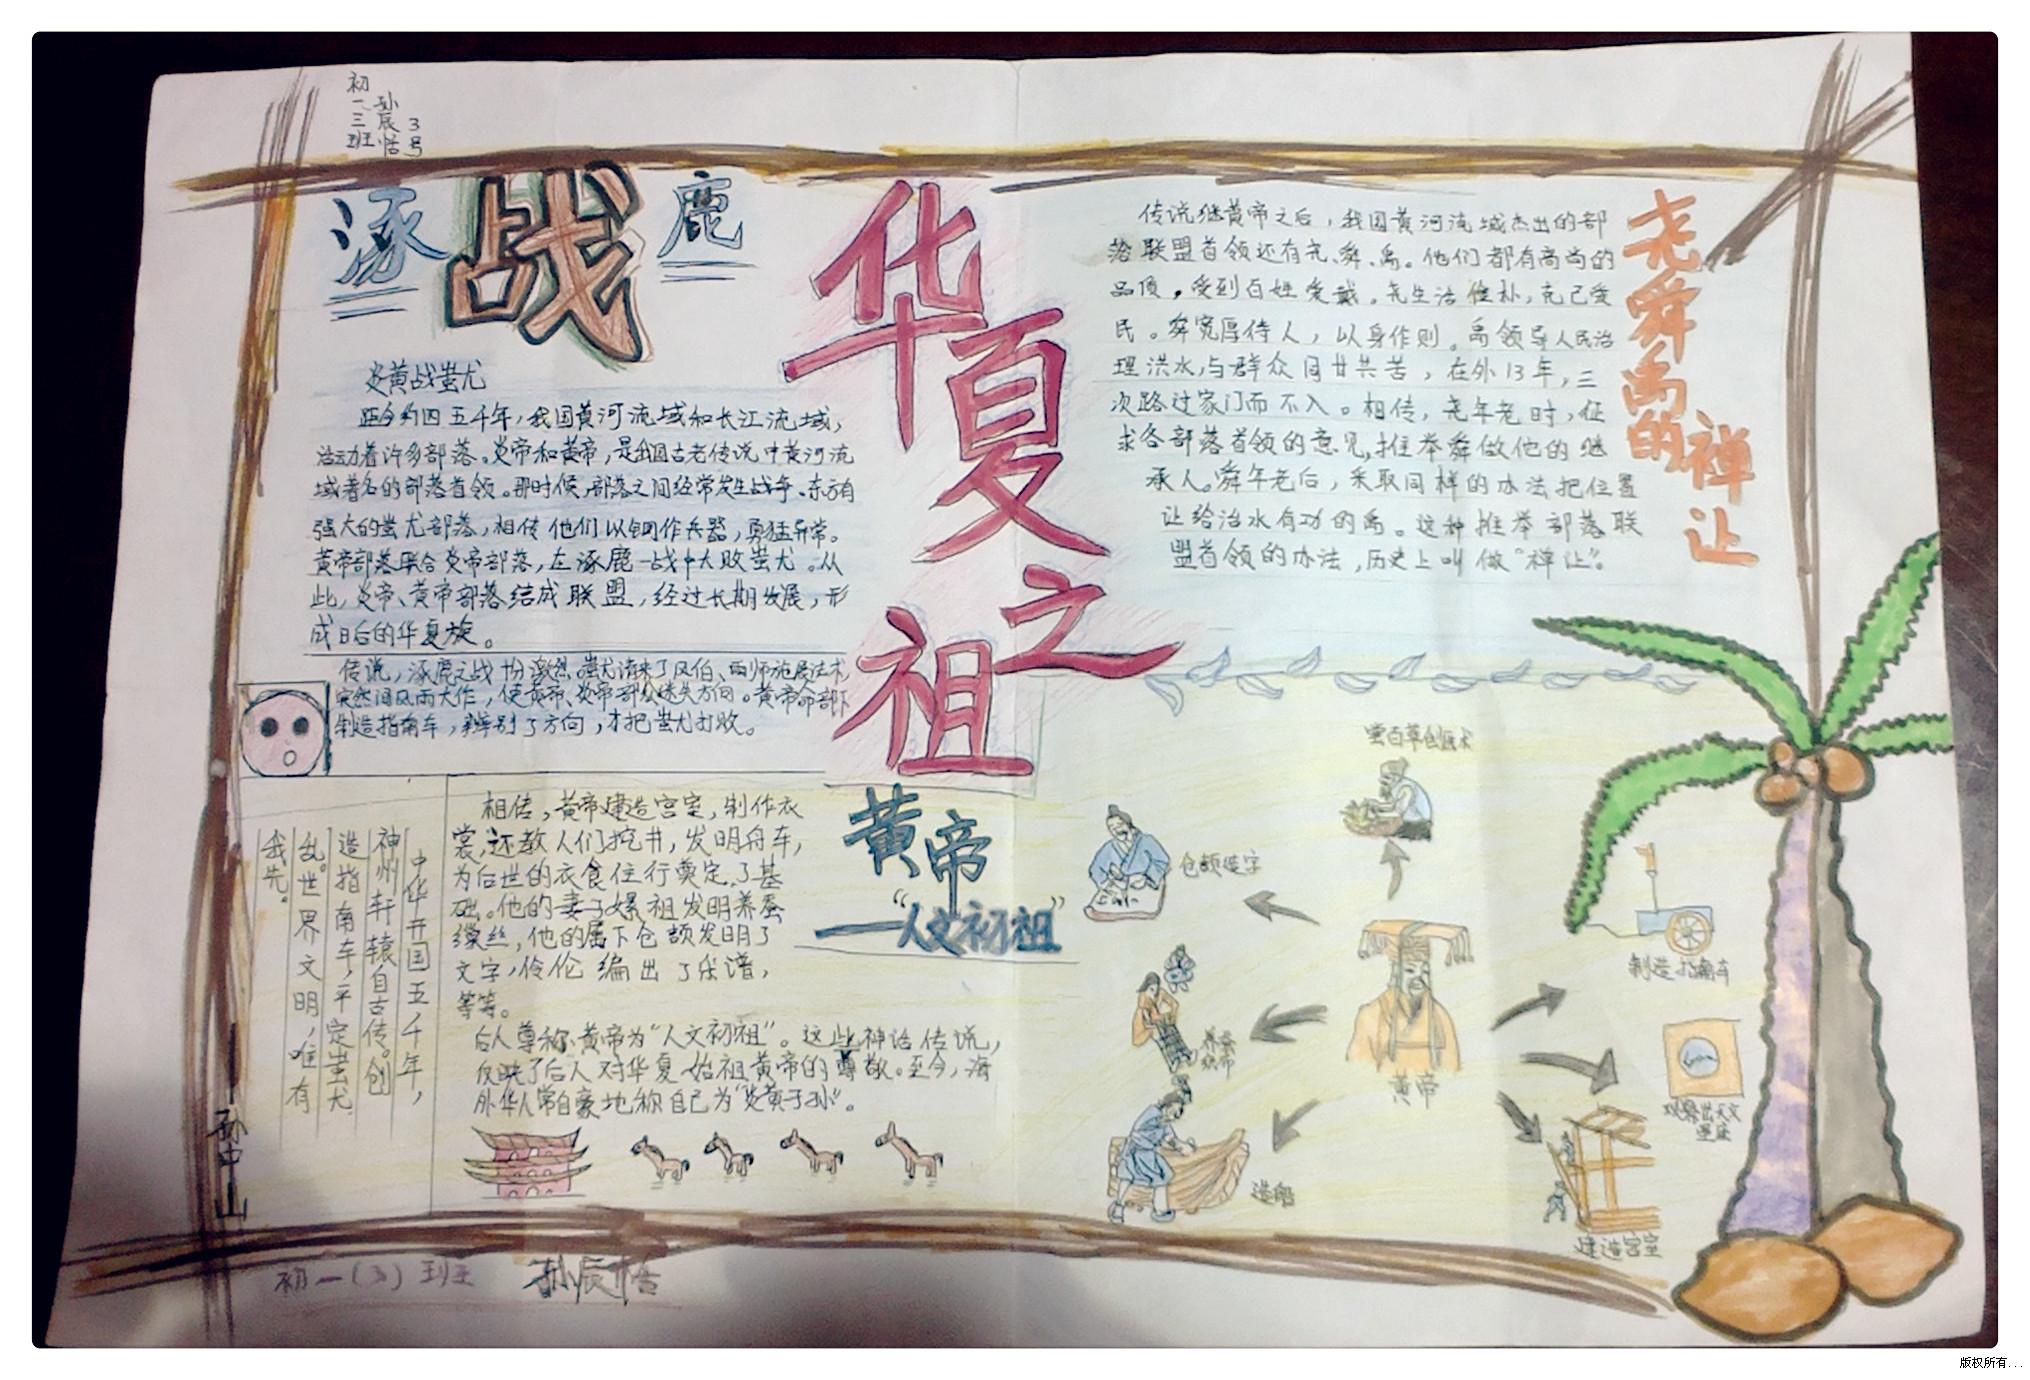 初一三班
孙辰悟
3号
涿鹿
战
炎黄战蚩尤
距今约四五千年，我国黄河流域和长江流域，
活动着许多部落。炎帝和黄帝，是我国古老传说中黄河流
域著名的部落首领。那时候，部落之间经常发生战争、东方有
强大的蚩尤部落，相传他们以铜作兵器，勇猛异常。
黄帝部落联合炎帝部落，在涿鹿一战中大败蚩尤。从
此，炎帝、黄帝部落结成联盟，经过长期发展，形
成日后的华夏族。
传说，涿鹿之战十分激烈。蚩尤请来了风伯、雨师施展法术
突然间风雨大作，使黄帝、炎帝部众迷失方向。黄帝命部下
制造指南车，辨别了方向，才把蚩尤打败。
华夏之祖
传说继黄帝之后，我国黄河流域杰出的部
落联盟首领还有尧、舜、禹。他们都有高尚的
品质，受到百姓爱戴。尧生活俭朴，克己爱
民。舜宽厚待人，以身作则。禹领导人民治
理洪水，与群众同甘共苦，在外13年，三
次路过家门而不入。相传，尧年老时，征
求各部落首领的意见，推举舜做他的继
承人。舜年老后，采取同样的办法把位置
让给治水有功的禹。这种推举部落联
盟首领的办法，历史上叫做“禅让”。
尧舜禹的
禅让
中华开国五千年，
神州轩辕自古传。创
造指南车，平定蚩尤
乱。世界文明，唯有
我先。
——孙中山
相传，黄帝建造宫室，制作衣
裳，还教人们挖井，发明舟车，
为后世的衣食住行奠定了基
础。他的妻子嫘祖发明养蚕
缫丝，他的属下仓颉发明了
文字，伶伦编出了乐谱，
等等。
后人尊称黄帝为“人文初祖”。这些神话传说，
反映了后人对华夏始祖黄帝的尊敬。至今，海
外华人常自豪地称自己为“炎黄子孙”。
黄帝
——“人文初祖”
尝百草创医术
仓颉造字
制造指南车
养蚕
织布
黄帝
观察出天文
星座
造船
建造宫室
初一（3）班
孙辰悟
版权所有...